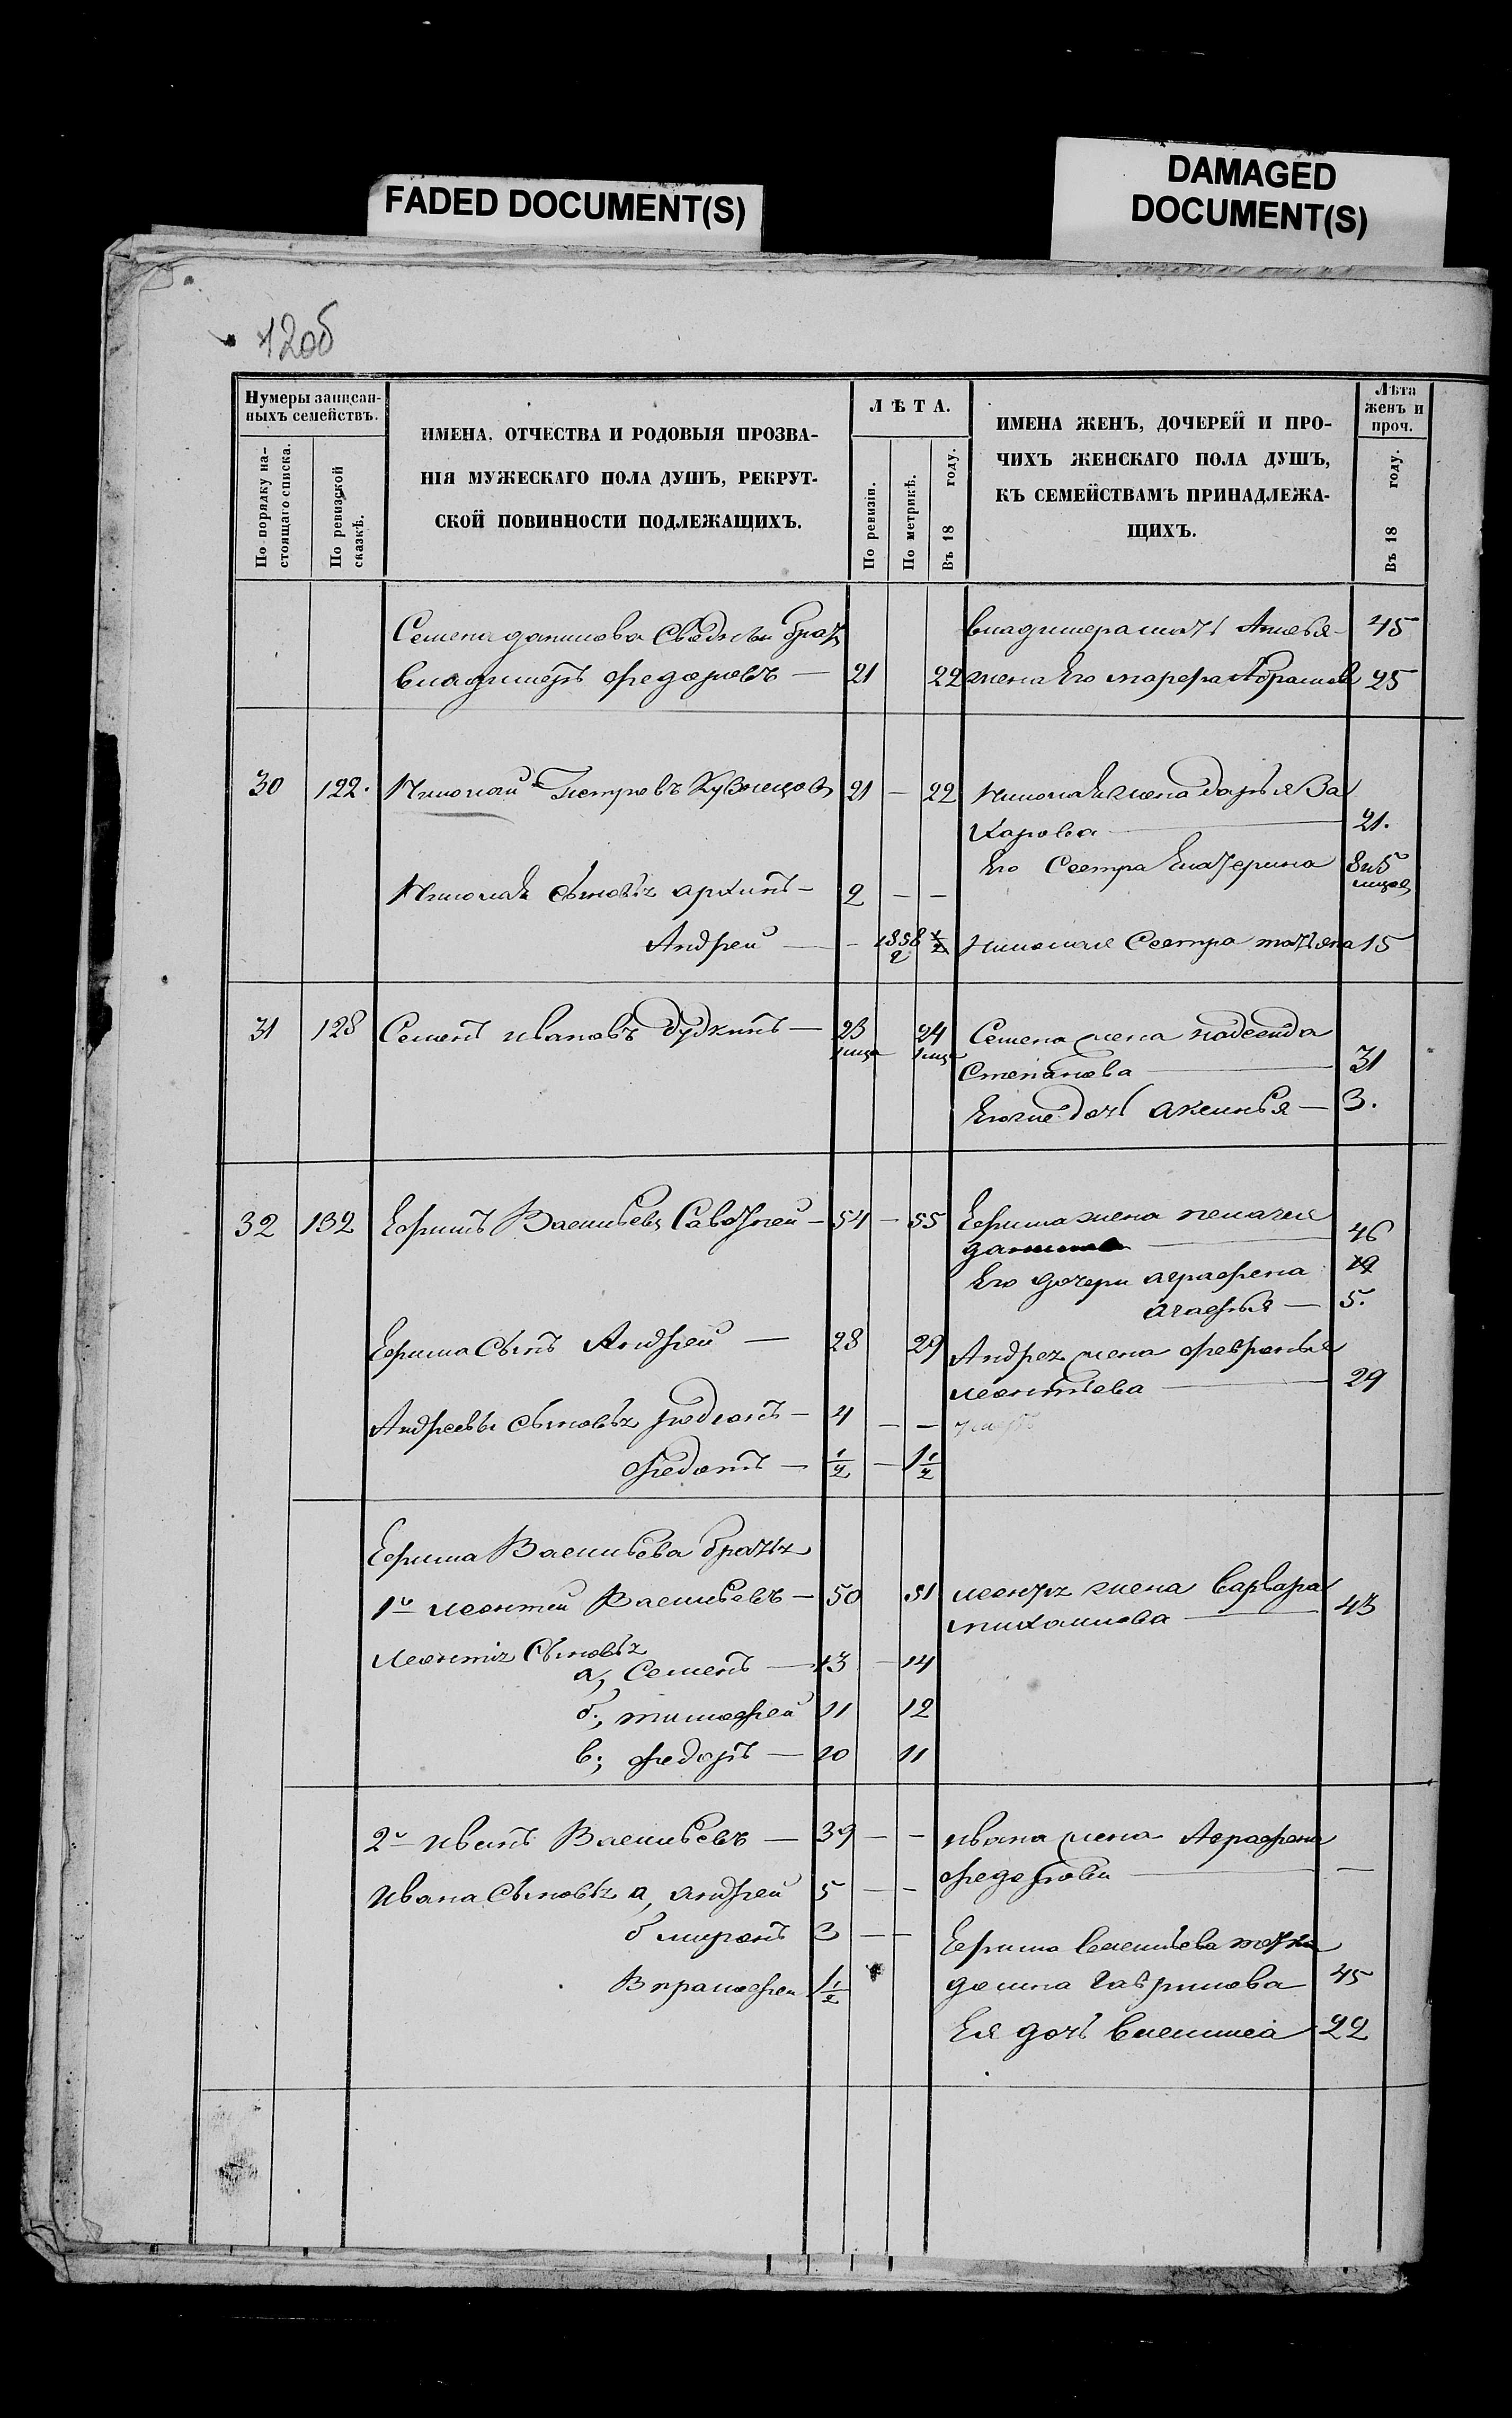 FADED DOCUMENT(S)
DAMAGED
DOCUMENT(S)
12об
Нумеры записан-
ныхъ семействъ.
По порядку на-
стоящаго списка.
По ревизской
сказкѣ.
ИМЕНА, ОТЧЕСТВА И РОДОВЫЯ ПРОЗВА-
НІЯ МУЖЕСКАГО ПОЛА ДУШЪ, РЕКРУТ-
СКОЙ ПОВИННОСТИ ПОДЛЕЖАЩИХЪ.
ЛѢТА.
По ревизіи.
По метрикѣ.
Въ 18 году.
ИМЕНА ЖЕНЪ, ДОЧЕРЕЙ И ПРО-
ЧИХЪ ЖЕНСКАГО ПОЛА ДУШЪ,
КЪ СЕМЕЙСТВАМЪ ПРИНАДЛЕЖА-
ЩИХЪ.
Лѣта
женъ и
проч.
Въ 18 году.
Семена данилова братъ владимера мать 45
владимеръ федоровъ — 21 22 жена Его марфа Абрамова 25
30 122. Николай Петровъ Кузнецовъ 21 — 22 Николая жена дарья За
харова — 21.
Его Сестра Екатерина
Николая сыновья архипъ — 2 — —
Андрей — — 1858 1/2 Николая Сестра татьяна 15
31 128 Семенъ ивановъ дудкинъ — 23 24 Семена жена надежда
Степанова — 31
дочь аксинья — 3.
32 132 Ефимъ Васильевъ — 54 — 55 Ефима жена пелагея
46
Его дочери аграфена
агафья — 5.
Ефима Сынъ Андрей — 28 29 Андрея жена февронья
леонтьева — 29
Андреевы сыновья родионъ — 4 — —
федотъ — 1/2 — 1 1/2
Ефима Васильева братья
1й леонтей Васильевъ — 50 51 леонтья жена варвара
михайлова — 43
Леонтія Сыновья
а, Семенъ — 13 — 14
б., тимофей 11 12
в; федоръ — 10 11
2й иванъ Васильевъ — 39 — — ивана жена Аграфена
федорова — —
ивана Сыновья а, андрей 5 — —
б миронъ 3 — —
Ефима Васильева тетка
В 1 1/2 домна гаврилова 45
Ея дочь василиса 22